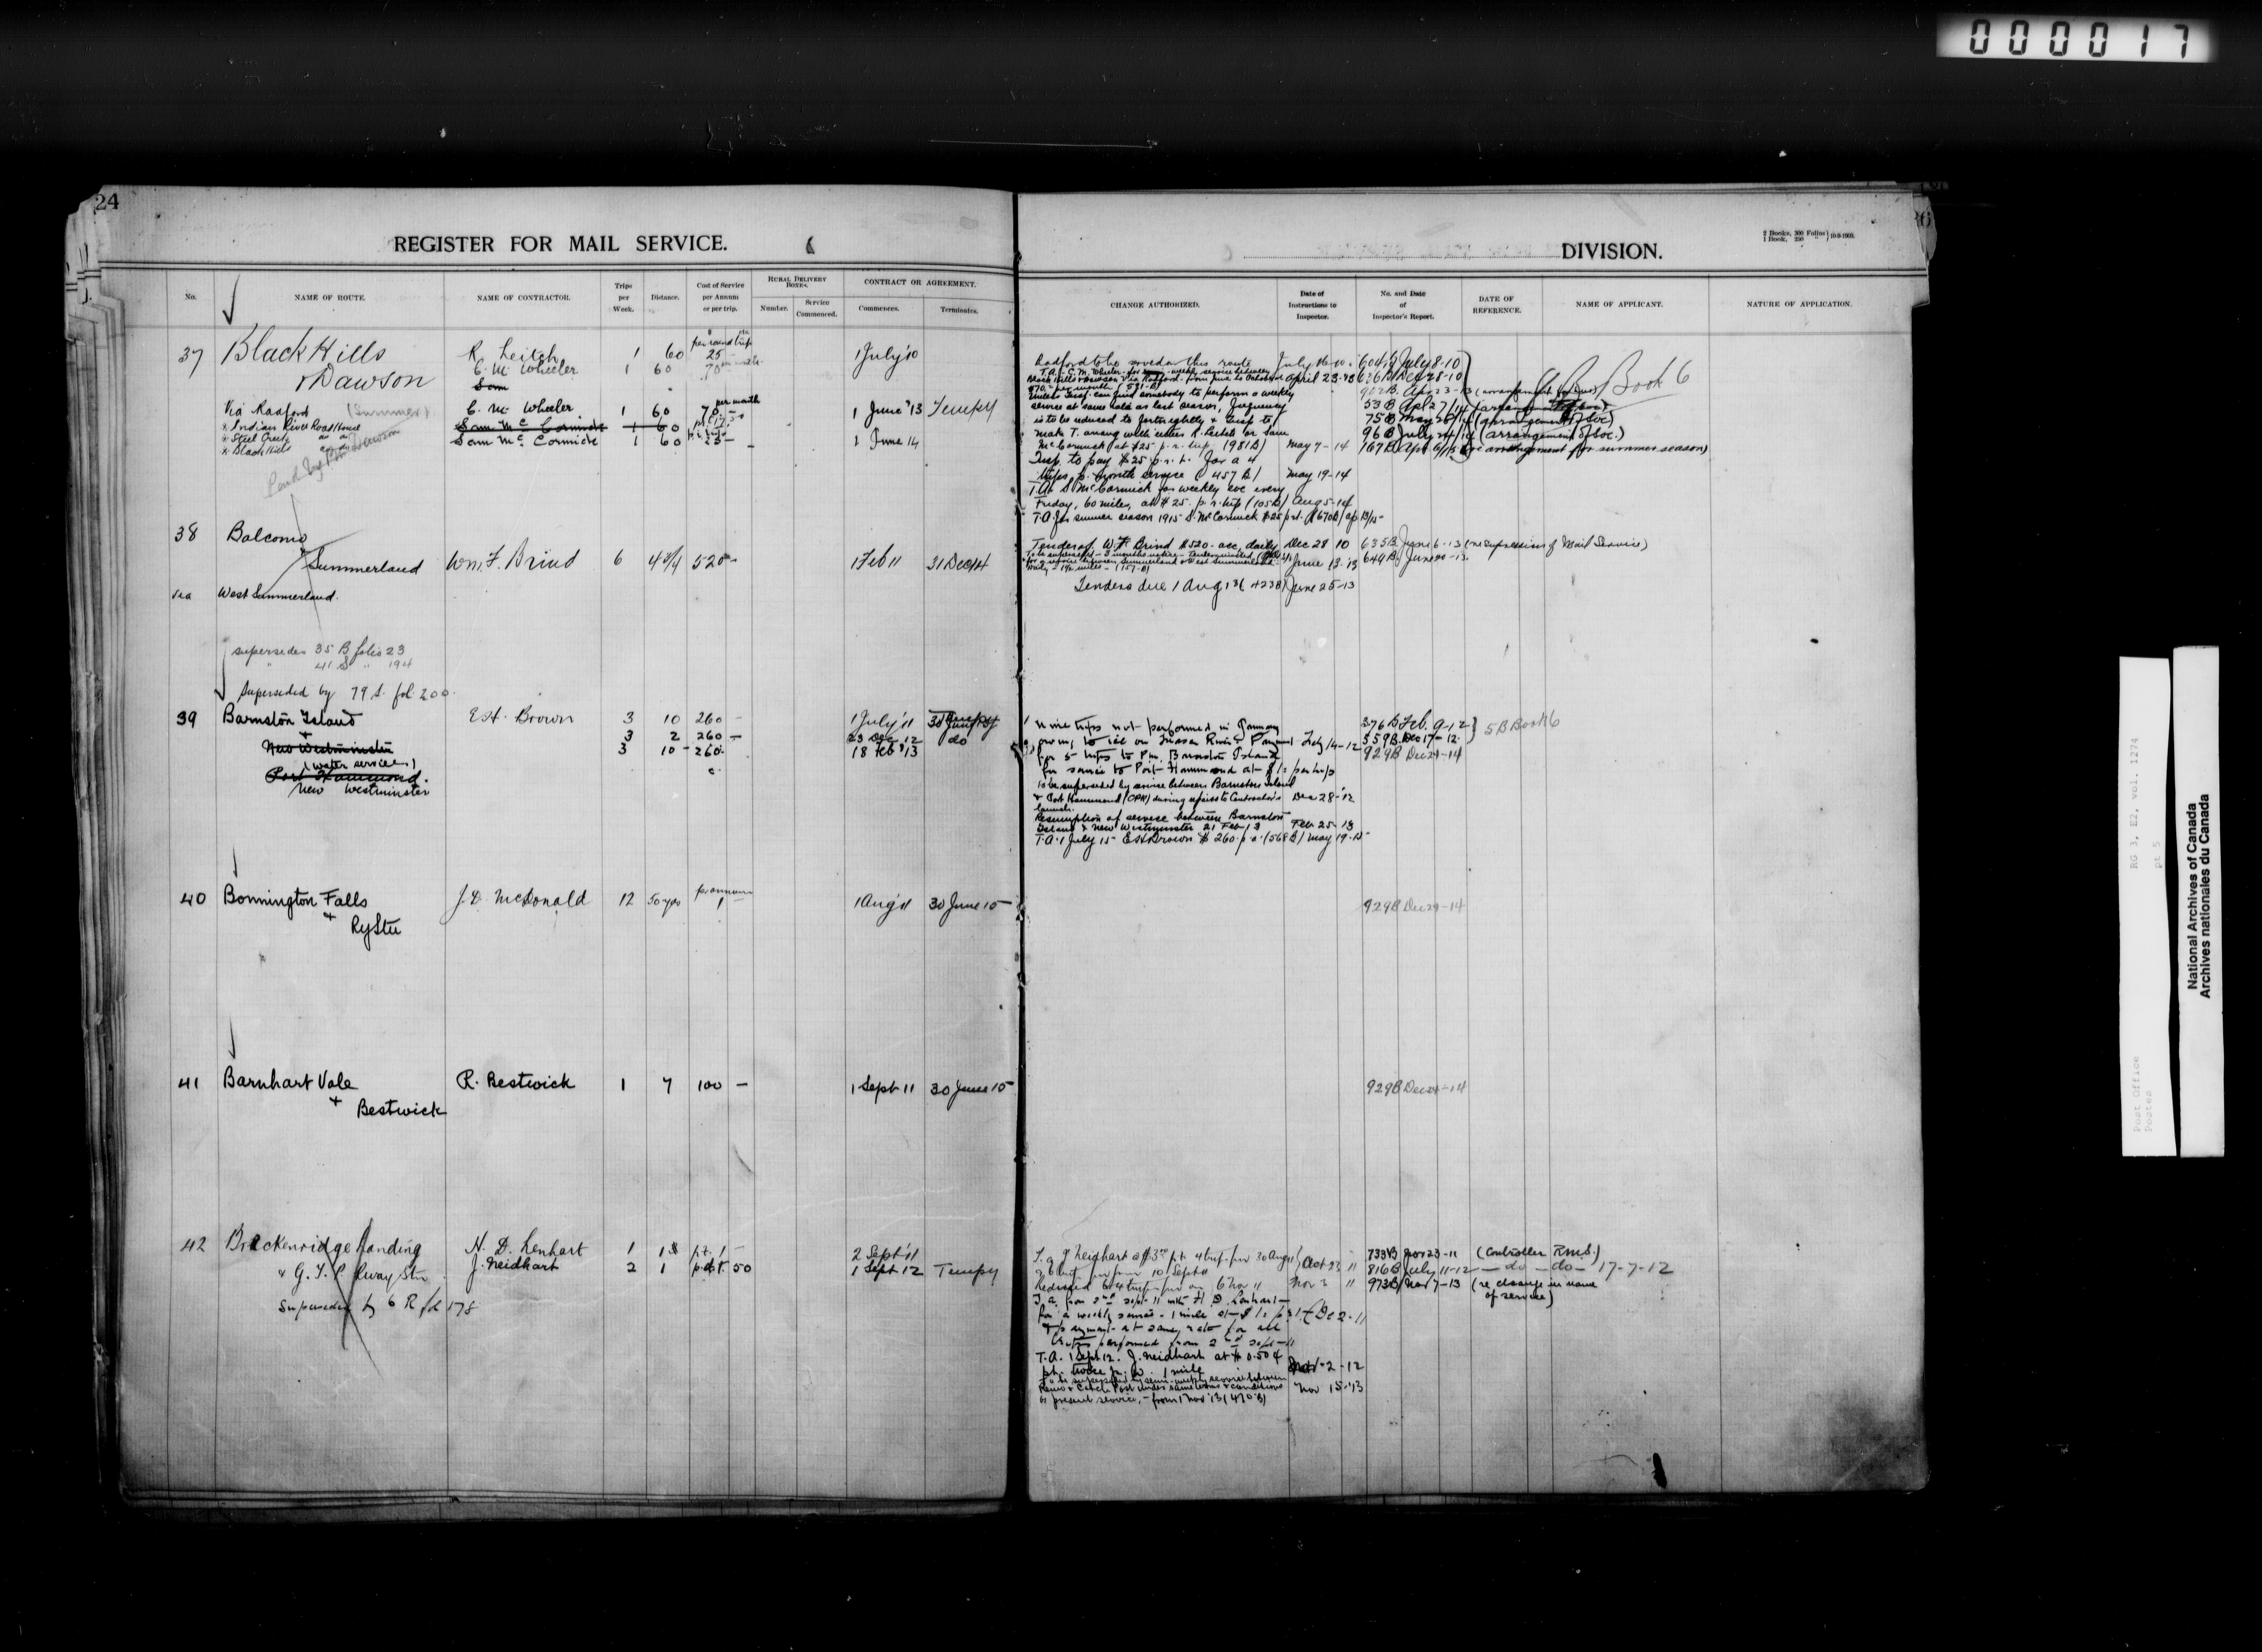 000017
24
REGISTER FOR MAIL SERVICE.
6
DIVISION.
2 Books, 300 Folios
1 Book, 250 "
10-9-1909.
No.
NAME OF ROUTE.
NAME OF CONTRACTOR.
Trips per Week.
Distance.
Cost of Service per Annum or per trip.
RURAL DELIVERY BOXES.
Number.
Service Commenced.
CONTRACT OR AGREEMENT.
Commences.
Terminates.
CHANGE AUTHORIZED.
Date of Instructions to Inspector.
No. and Date of Inspector's Report.
DATE OF REFERENCE.
NAME OF APPLICANT.
NATURE OF APPLICATION.
37 Black Hills R. Leitch 1 60 per round trip 25 – 1 July '10
& Dawson C. M. Wheeler 1 60 70
Sam
Via Radford (Summer) C. M. Wheeler 1 60 per month 70 – 1 June '13 Tempy
" Indian River Road House Sam McCormick 1 60
" Steel Creek Sam McCormick 1 60 25 – 1 June 14
" Black Hills
Radford to be served on this route July 16-10 604 B July 8-10
T.A. C. M. Wheeler for weekly service between April 23-13 636 B Dec 28-10
Black Hills & Dawson via Radford from June to October
$70 per month (531-B)
Unless Insp. can find somebody to perform a weekly 53 B Apl 27/14
service at same rate as last season, frequency
is to be reduced to fortnightly & Insp to 75 B May 20/14 (arrangement of loc)
make T. arrang with either R. Leitch or Sam 96 B July 24/14 (arrangement of loc.)
McCormick at $25 p.r. trip, (981 B) May 7-14 167 B Apl 6/15 (re arrangement for summer season)
Insp. to pay $25 p.r.t. for a 4
trips p. month service (457 B) May 19-14
T.A. S. McCormick for weekly sve every
Friday, 60 miles, at $25. p.r. trip (105 B) Aug 5-14
T.A. for summer season 1915 S. McCormick $25 p.r.t. (670 B) Ap 13/15
Book 6
38 Balcomo
& Summerland Wm. F. Brind 6 4 3/4 520 – 1 Feb 11 31 Dec 14
via West Summerland.
Tender of W. F. Brind $520. acc. daily Dec 28 10 635 B June 6-13 (re supression of Mail Service)
June 13-13 649 B June 20-13
Tenders due 1 Aug 13 (423 B) June 25-13
supersedes 35 B folio 23
" 41 S " 194
Superseded by 79 S. fol. 200.
39 Barnston Island E. H. Brown 3 10 260 – 1 July '11 30 June 15 Tempy
& New Westminster 3 2 260 – 23 Dec 12 do
(water service) 3 10 – 260. 18 Feb '13
Port Hammond.
New Westminster
Nine trips not performed in January 376 B Feb. 9-12
owing to ice on Fraser River & Payment Feby 14-12 559 B Dec 17-12
for 5 trips to Pm. Barnston Island 929 B Dec 29-14
for service to Port Hammond at $1. per trip
5 B Book 6
To be superseded by service between Barnston Island
& Port Hammond (CPR) during repairs to Contractor's Dec 28-12
launch.
Resumption of service between Barnston
Island & New Westminster 21 Feb 13 Feb 25-13
T.A. 1 July 15 E H Brown $260 p.a. (568 B) May 19-15
40 Bonnington Falls J. D. McDonald 12 50 yds p. annum 1 – 1 Aug '11 30 June 15
& Ry Stn 929 B Dec 29-14
41 Barnhart Vale R. Bestwick 1 7 100 – 1 Sept 11 30 June 15
& Bestwick 929 B Dec 29-14
42 Brackenridge Landing N. D. Lenhart 1 1 p.t. 1 – 2 Sept '11
& G. T. P. Rway Stn J. Neidhart 2 1 p.d.t. 50 1 Sept 12 Tempy
Superseded by 6 R fol 178
733 B Nov 23-11 (Controller R.M.S.)
Oct 23 11 816 B July 11-12 – do – do – 17-7-12
Nov 3 11 973 B Nov 7-13 (re change in name of service)
T.a. from 2nd Sept. 11 with H. D. Lenhart
for a weekly service – 1 mile at $1. p.t. Dec 2-11
& payment at same rate for all
trips performed from 2nd Sept 11
T.A. 1 Sept 12. J. Neidhart at $0.50¢
p.t. twice p. w. 1 mile Nov 2-12
To be superseded by semi-weekly service between
under same terms & conditions Nov 15-13
as present service, – from 1 Nov '13 (470 B)
Post Office
Postes
RG 3, E2, vol. 1274
pt 5
National Archives of Canada
Archives nationales du Canada